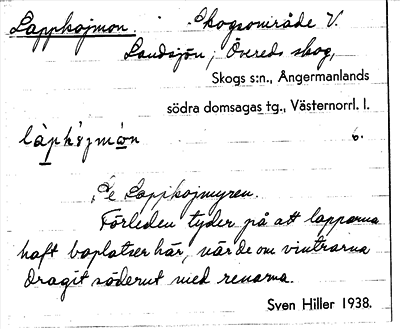 Lappkojmon Skogsområde V.
Landsjön, Övereds skog,
Skogs s:n., Ångermanlands
södra domsagas tg., Västernorrl. l.
6.
Se Lappkojmyren.
Förleden tyder på att lapparna
haft boplatser här, när de om vintrarna
dragit söderut med renarna.
Sven Hiller 1938.